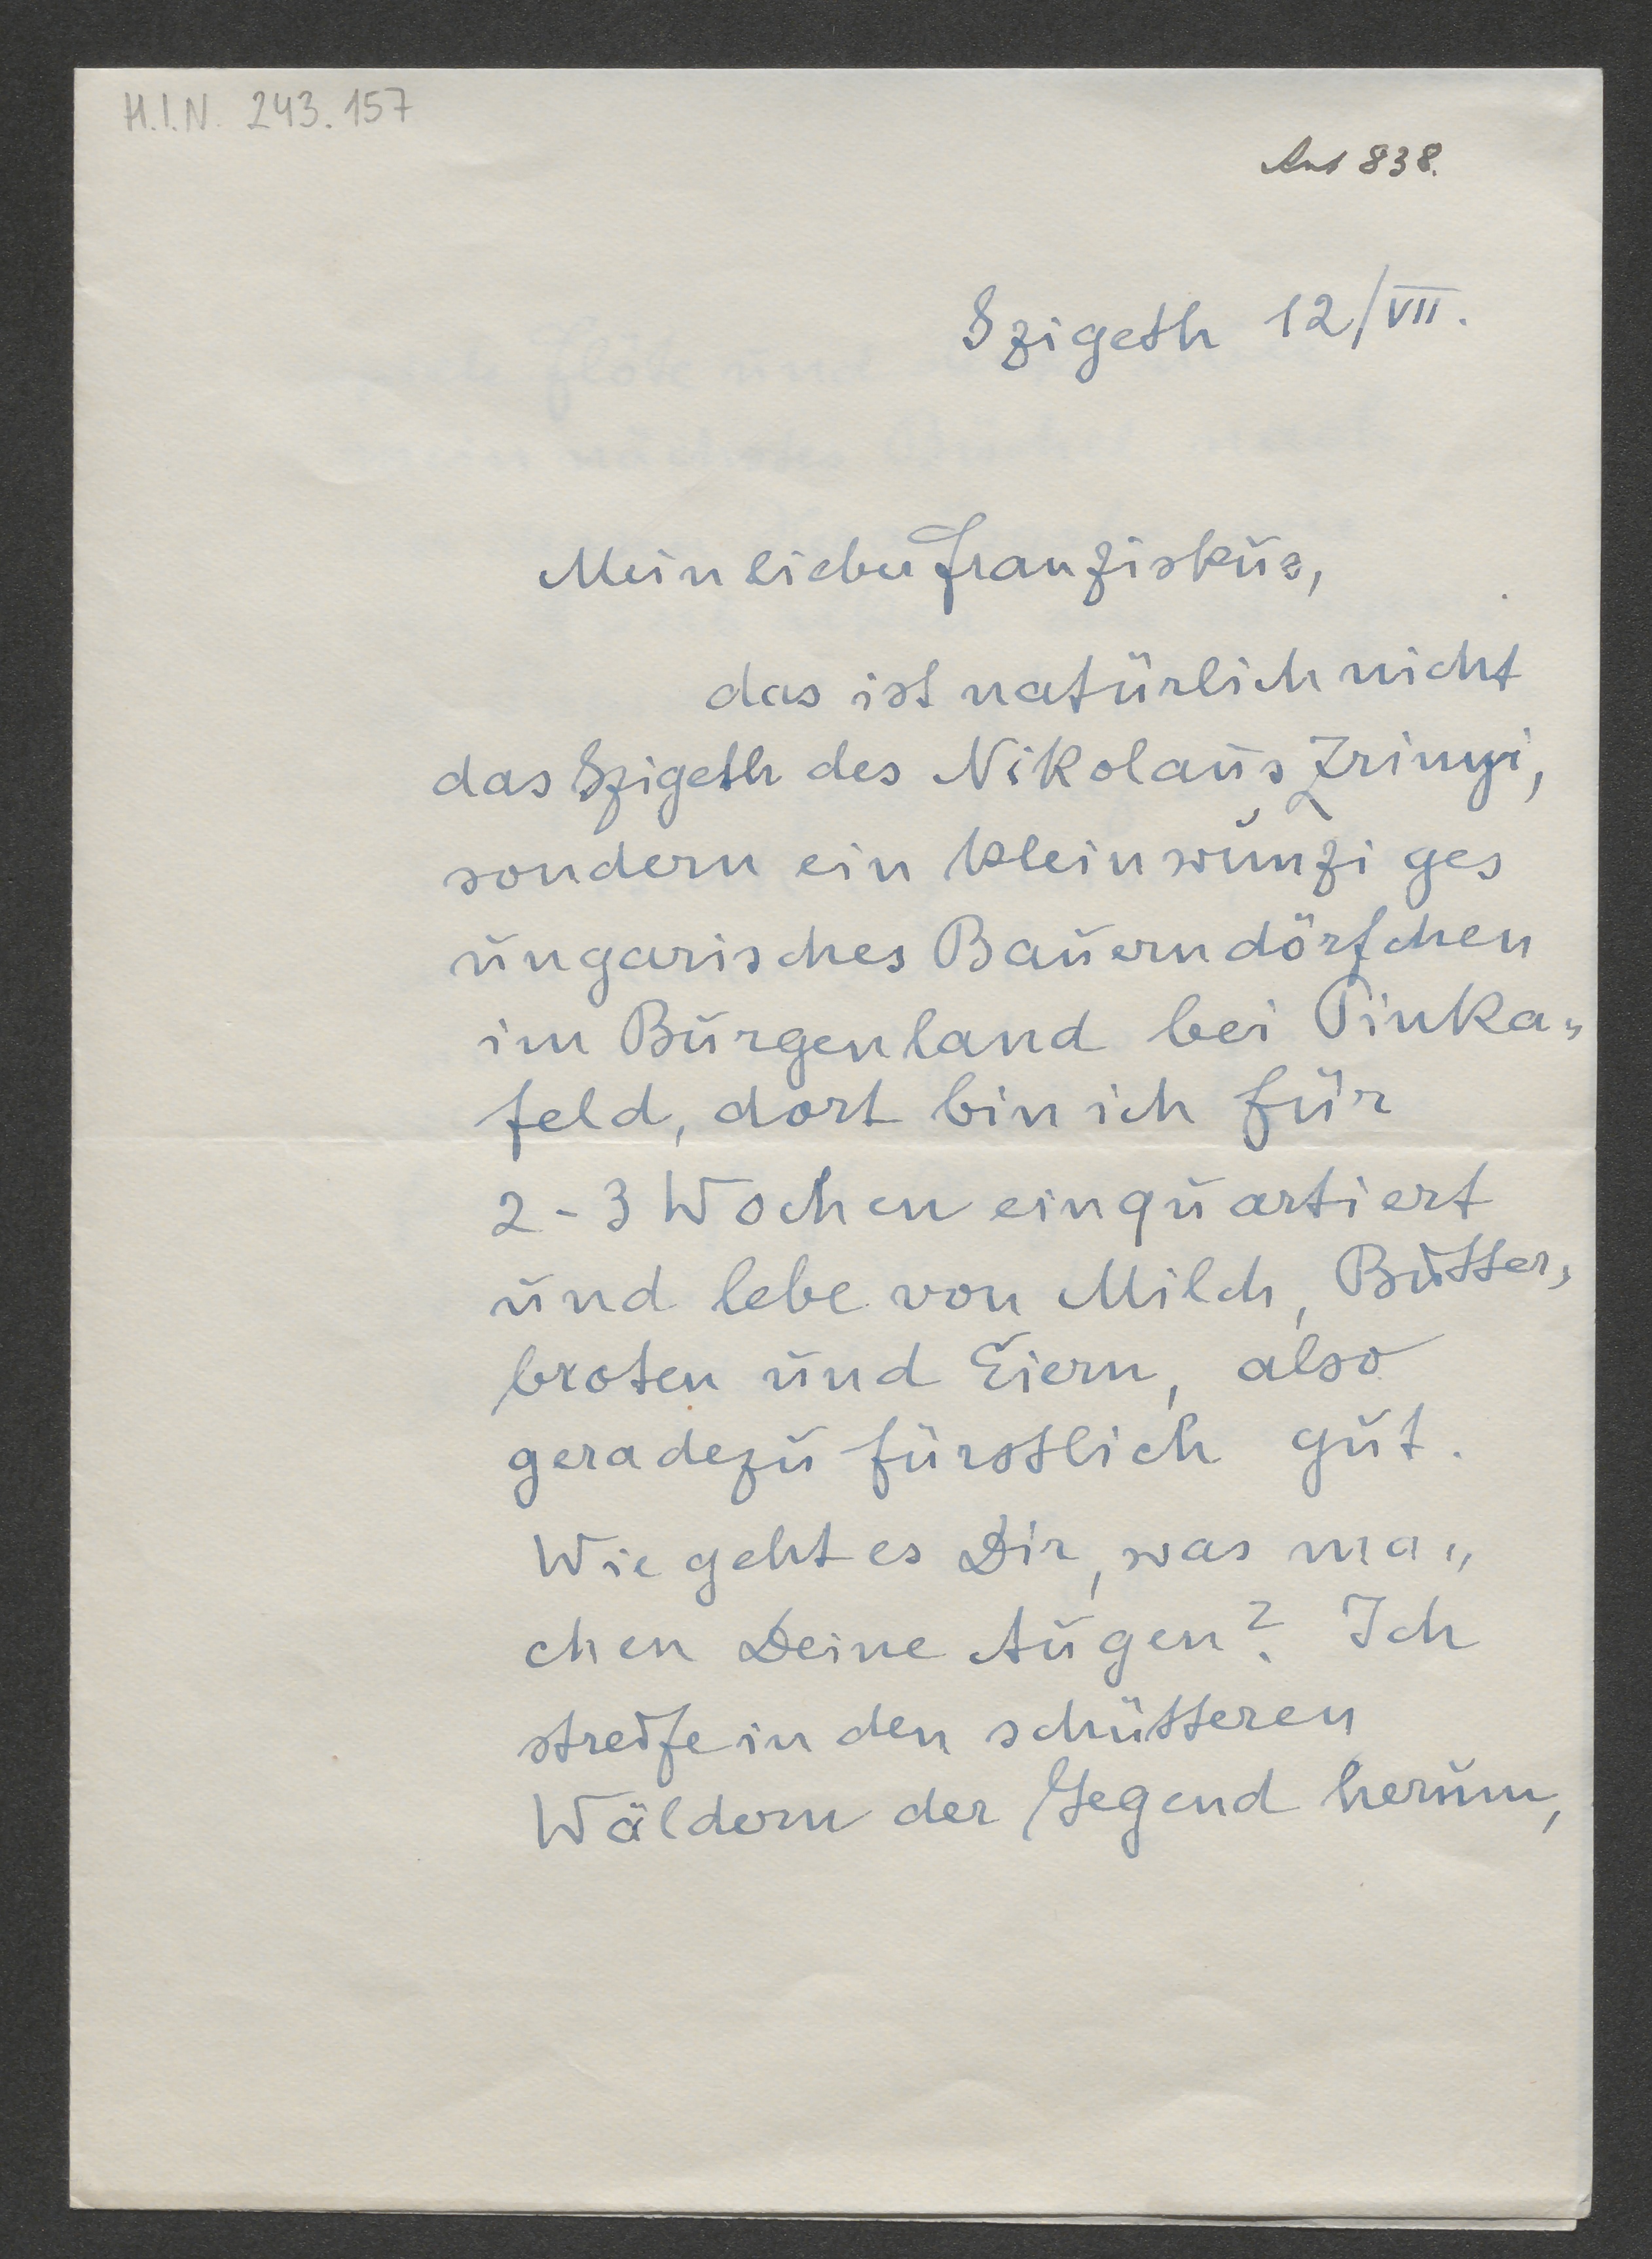 H.I.N. 243.157
Aut 838.
Szigeth 12/VII.
Mein lieber Franziskus,
das ist natürlich nicht
das Szigeth des Nikolaus Zrinyi,
sondern ein kleinwunziges
ungarisches Bauerndörfchen
im Burgenland bei Pinka„
feld, dort bin ich für
2-3 Wochen einquartiert
und lebe von Milch, Butter„
broten und Eiern, also
geradezu fürstlich gut.
Wie geht es Dir, was ma„
chen Deine Augen? Ich
streife in den schütteren
Wäldern der Gegend herum,